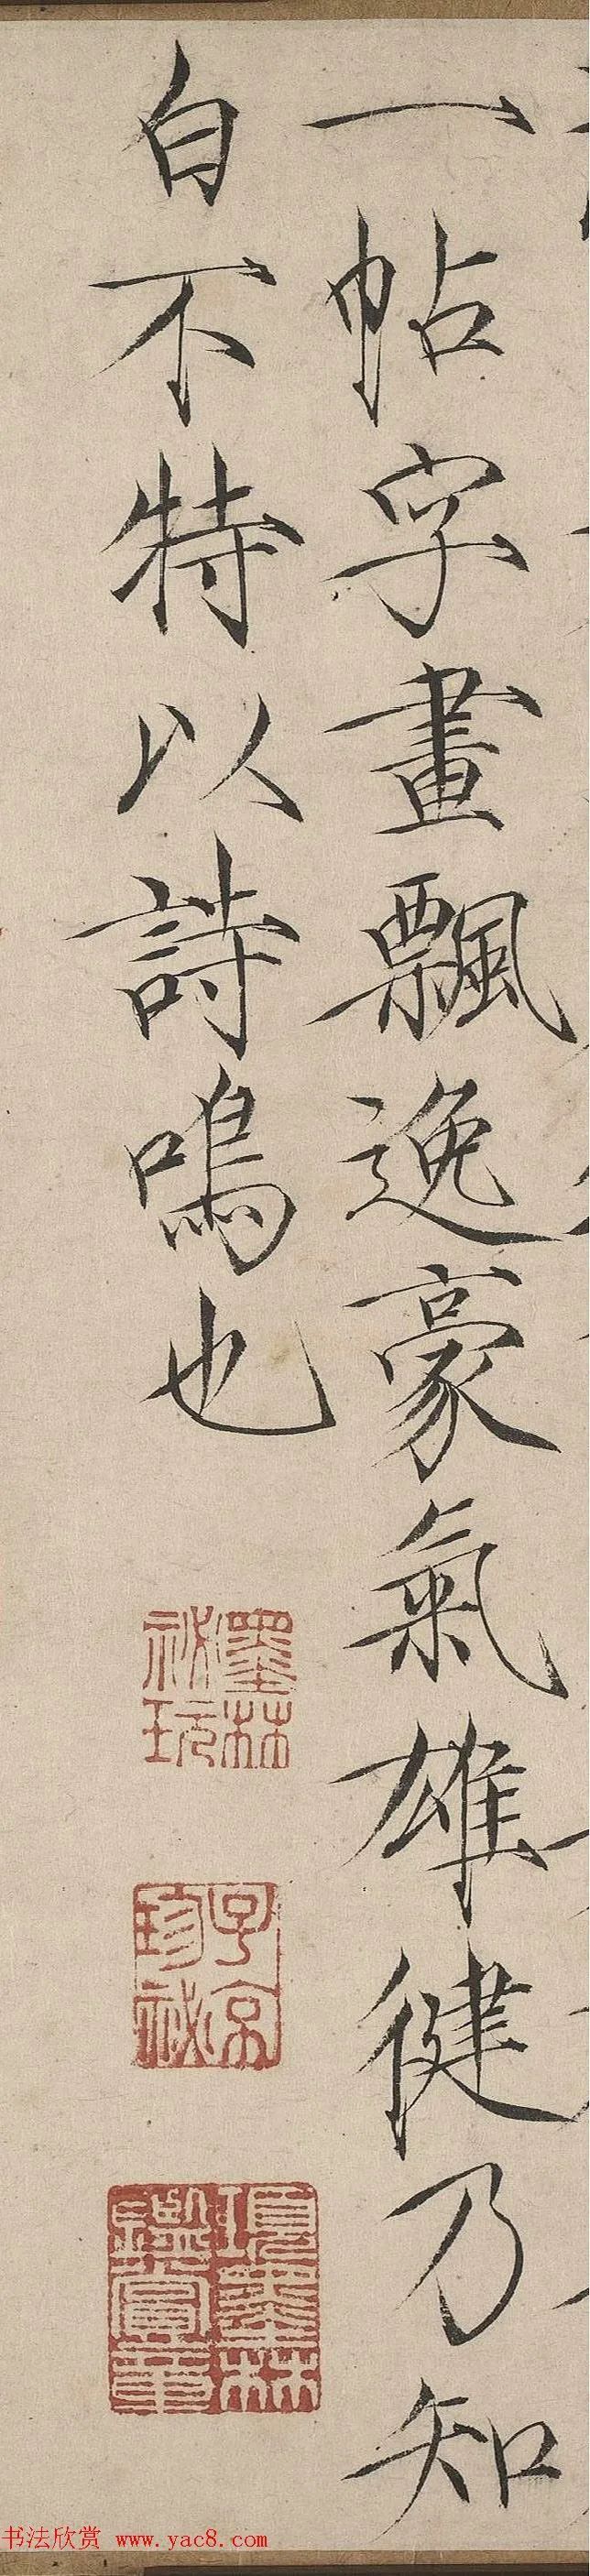 一帖字畫飄逸豪氣雄徤乃知
白不特以詩鳴也
墨林
祕玩
子京
珍祕
項墨林
鑑賞章
书法欣赏 www.yac8.com